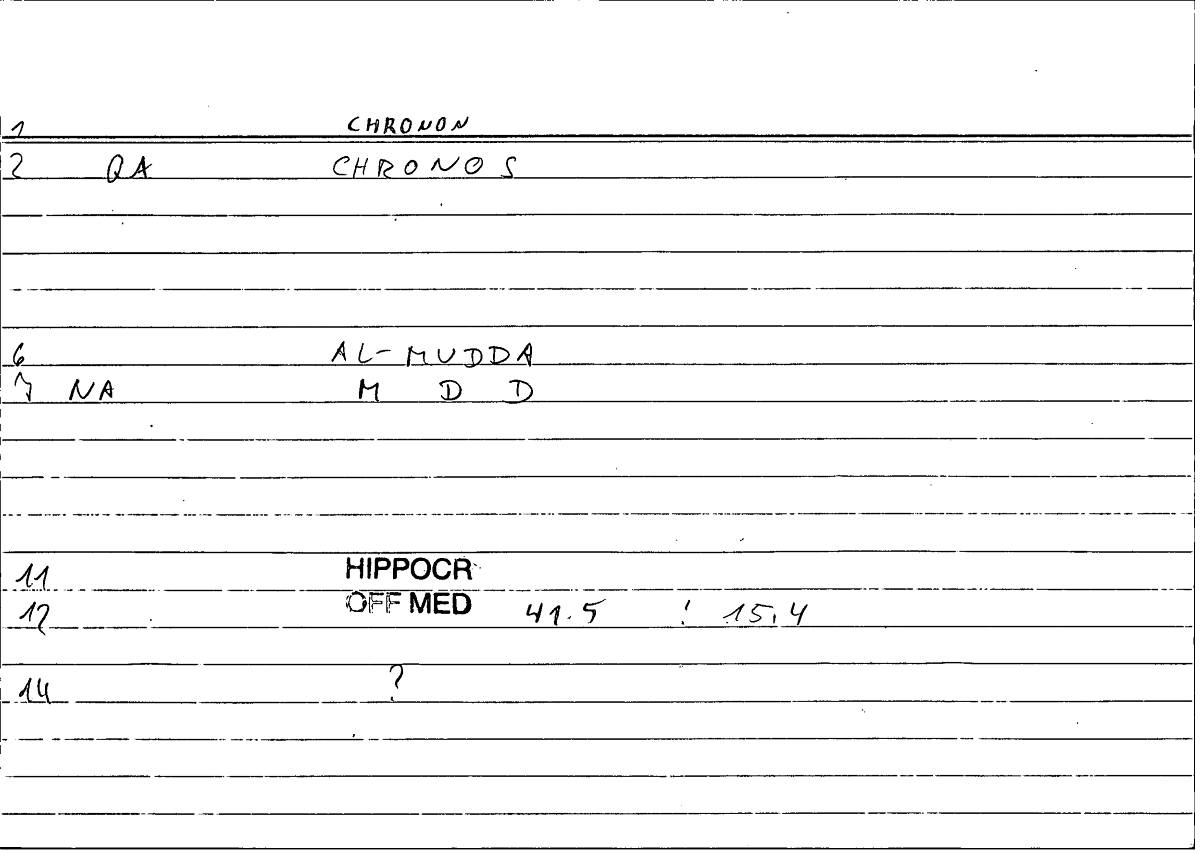 1 CHRONON
2 QA CHRONOS
6 AL-MUDDA
7 NA M D D
11 HIPPOCR
12 OFF MED 41.5 : 15,4
14 ?